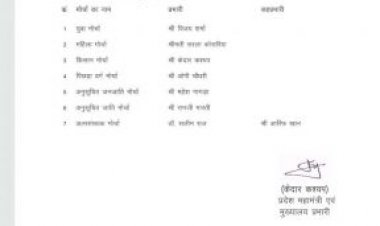 क्र मोर्चा का नाम प्रभारी सहप्रभारी
1 युवा मोर्चा श्री विजय शर्मा
2 महिला मोर्चा श्रीमती सरला कोसरिया
3 किसान मोर्चा श्री केदार कश्यप
4 पिछड़ा वर्ग मोर्चा श्री ओपी चौधरी
5 अनुसूचित जनजाति मोर्चा श्री महेश गागड़ा
6 अनुसूचित जाति मोर्चा श्री
7 अल्पसंख्यक मोर्चा डॉ. सलीम राज श्री खान
(केदार कश्यप)
प्रदेश महामंत्री एवं
मुख्यालय प्रभारी